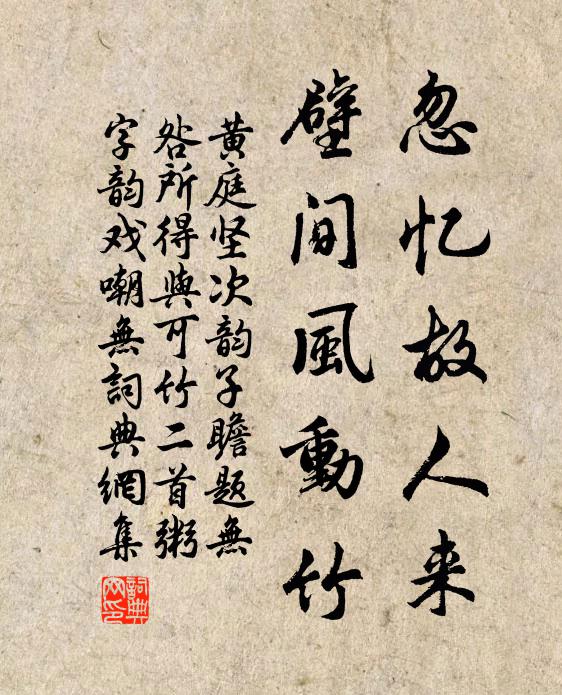 忽忆故人来
壁间風動竹
黄庭坚次韵子瞻题無
咎所得與可竹二首粥
字韵戏嘲無詞典網集
詞典
网印